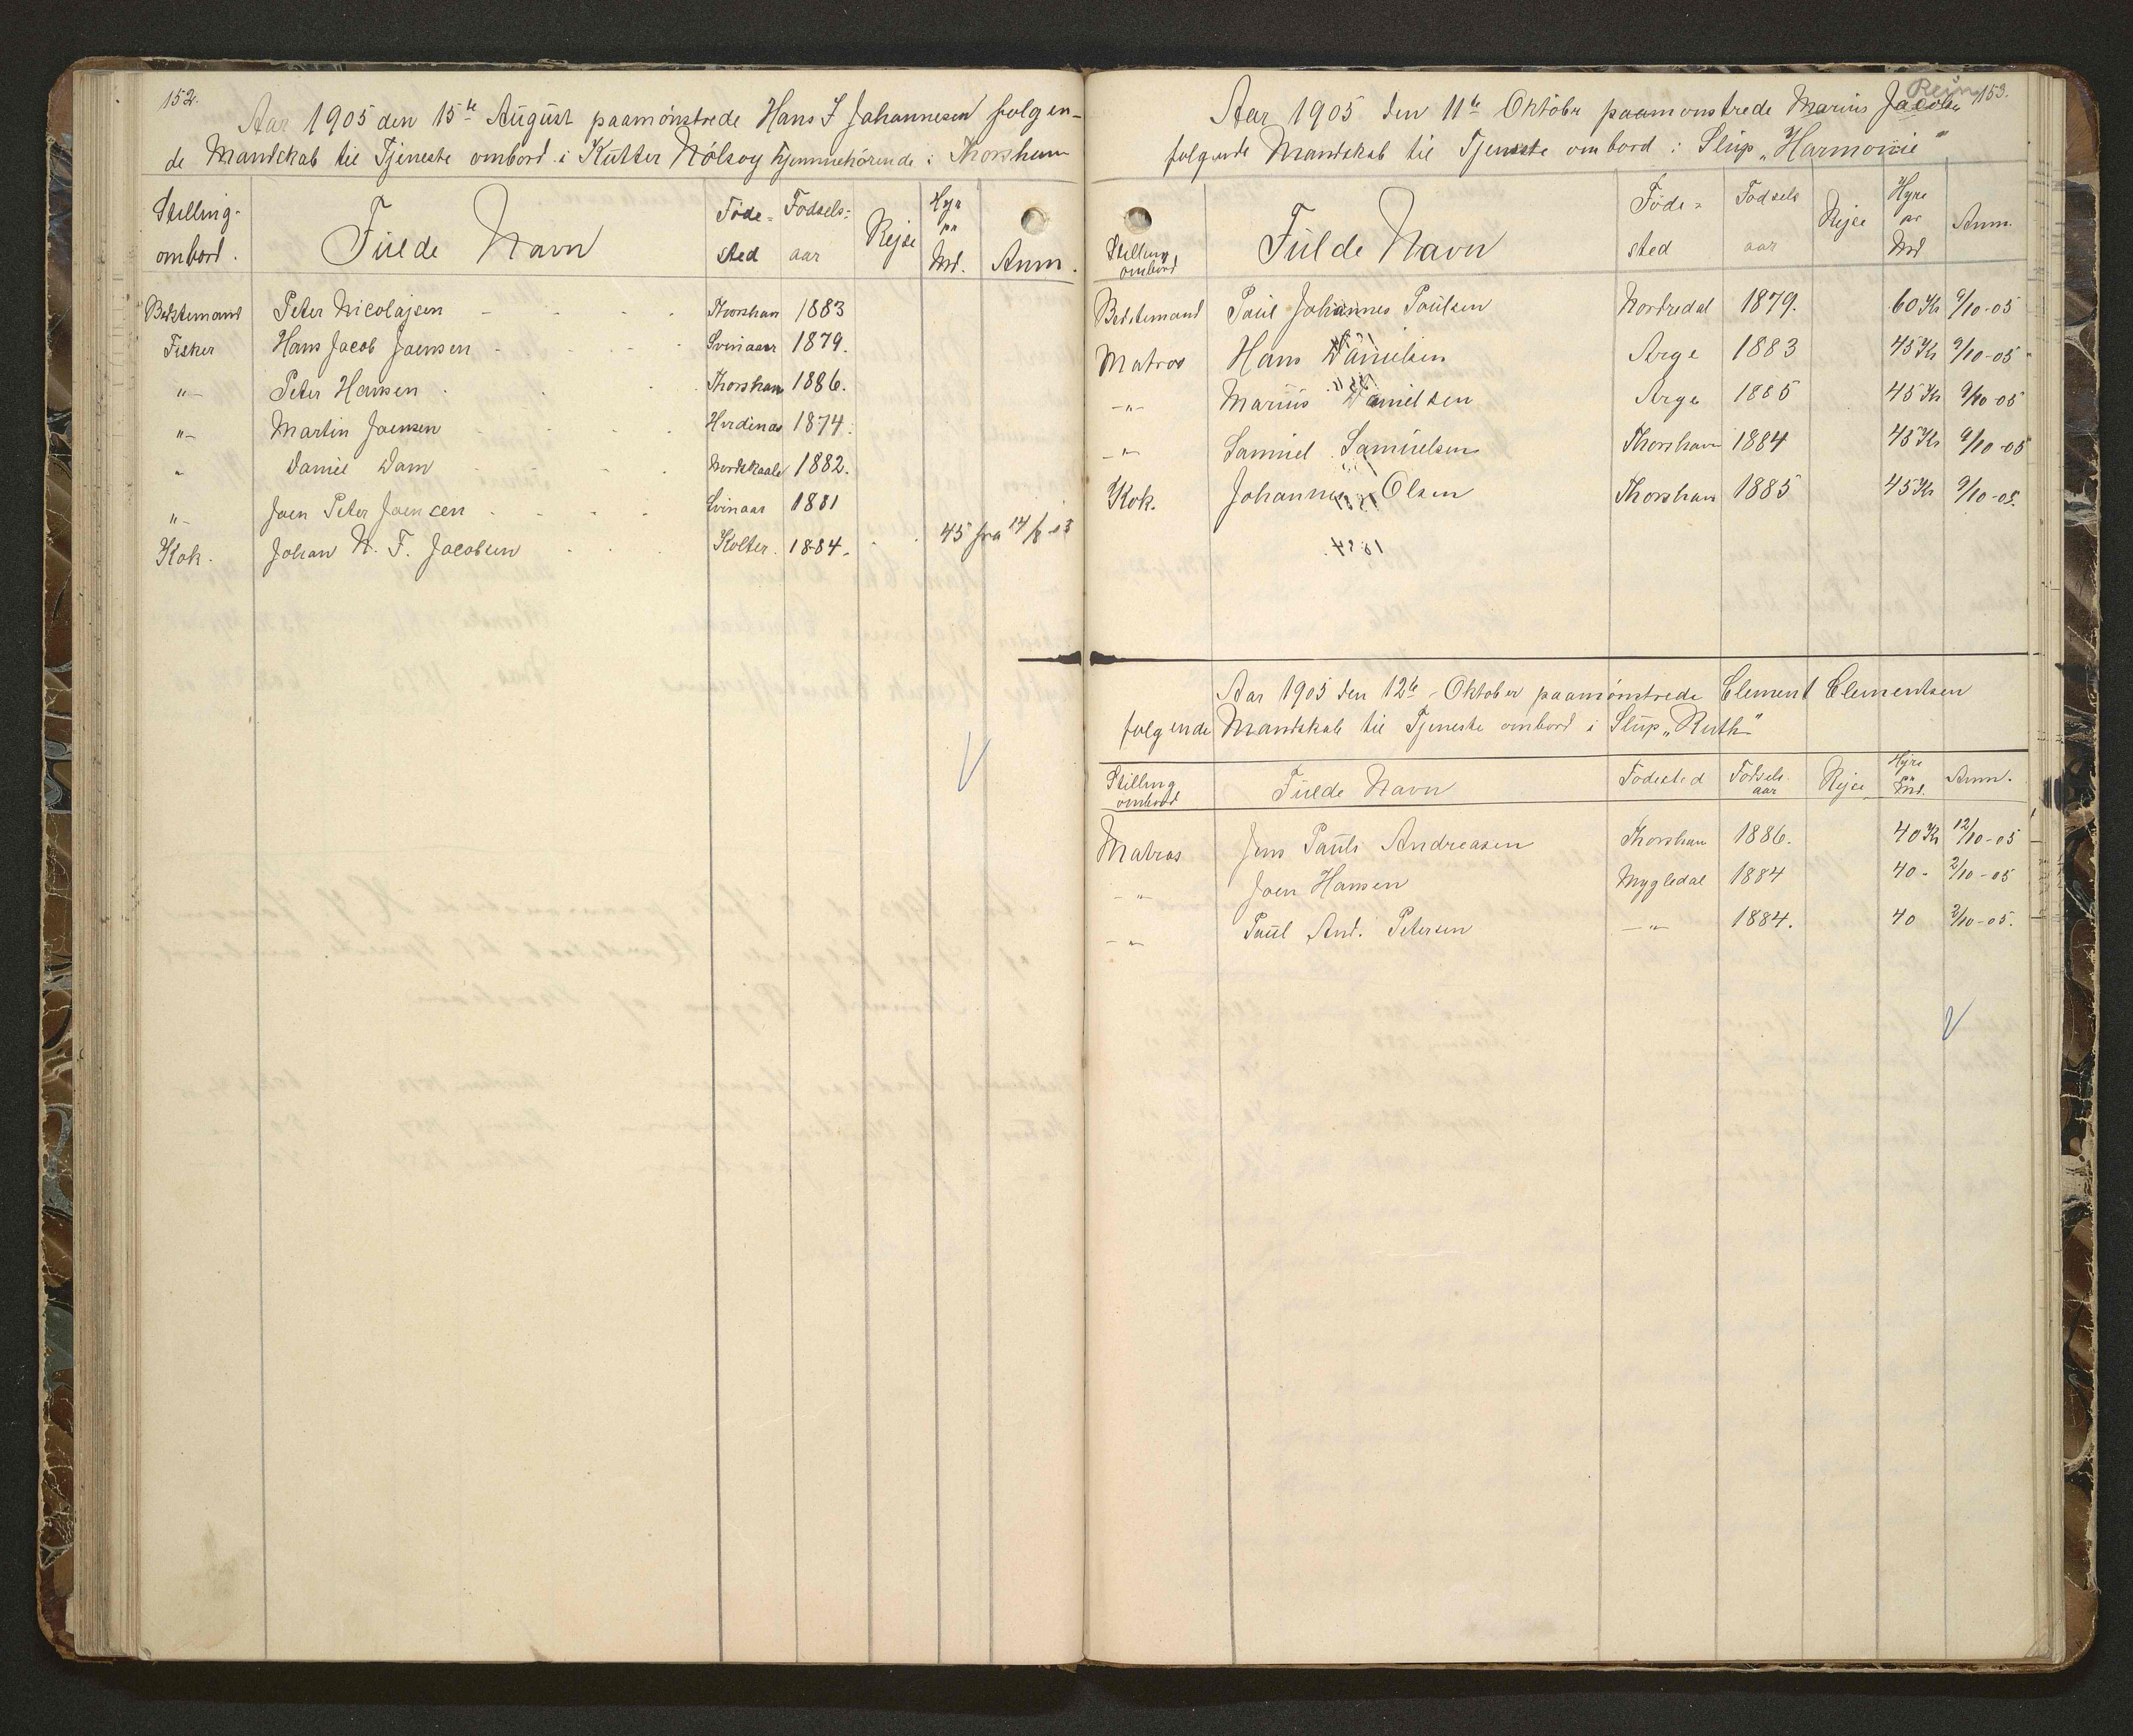 152.
Aar 1905 den 15de August paamönstrede Hans J Johannesen følgen-
de Mandskab til Tjeneste ombord i Kutter Nólsoy hjemmehörende i Thorshavn
Stilling ombord. Fulde Navn Föde-sted Födsels-aar Rejse Hyre pr Md. Anm.
Bedstemand Peter Nicolajsen Thorshavn 1883
Fisker Hans Jacob Joensen Svinaar 1879.
"- Peter Hansen Thorshavn 1886.
"- Martin Joensen 1874.
" Daniel Dam Nordskaale 1882.
"- Joen Peter Joensen Svinaar 1881
Kok. Johan N. F. Jacobsen Kolter. 1884. 45 fra 14/8-05
153.
Aar 1905 den 11te Oktober paamonstrede Marius Jacobsen
folgende Mandskab til Tjeneste ombord i Slup "Harmonie"
Stilling ombord Fulde Navn Föde-sted Fodsels aar Rejse Hyre pr Md Anm.
Bedstemand Poul Johannes Poulsen Nordredal 1879. 60 Kr 9/10-05
Matros Hans Danielsen Arge 1883 45 Kr 9/10-05
-"- Marius Danielsen Arge 1885 45 Kr 9/10-05
-"- Samuel Samuelsen Thorshavn 1884 45 Kr 9/10-05
Kok. Johannes Olsen Thorshavn 1885 45 Kr 9/10-05.
Aar 1905 den 12te Oktober paamönstrede Clement Clementsen
folgende Mandskab til Tjeneste ombord i Slup "Ruth"
Stilling ombord Fulde Navn Fodested Fodsels aar Rejse Hyre pr Md. Anm.
Matros Jens Pauli Andreasen Thorshavn 1886. 40 Kr 12/10-05
-"- Joen Hansen Mygledal 1884 40 - 2/10-05
-"- Poul And. Petersen -"- 1884. 40 2/10-05.